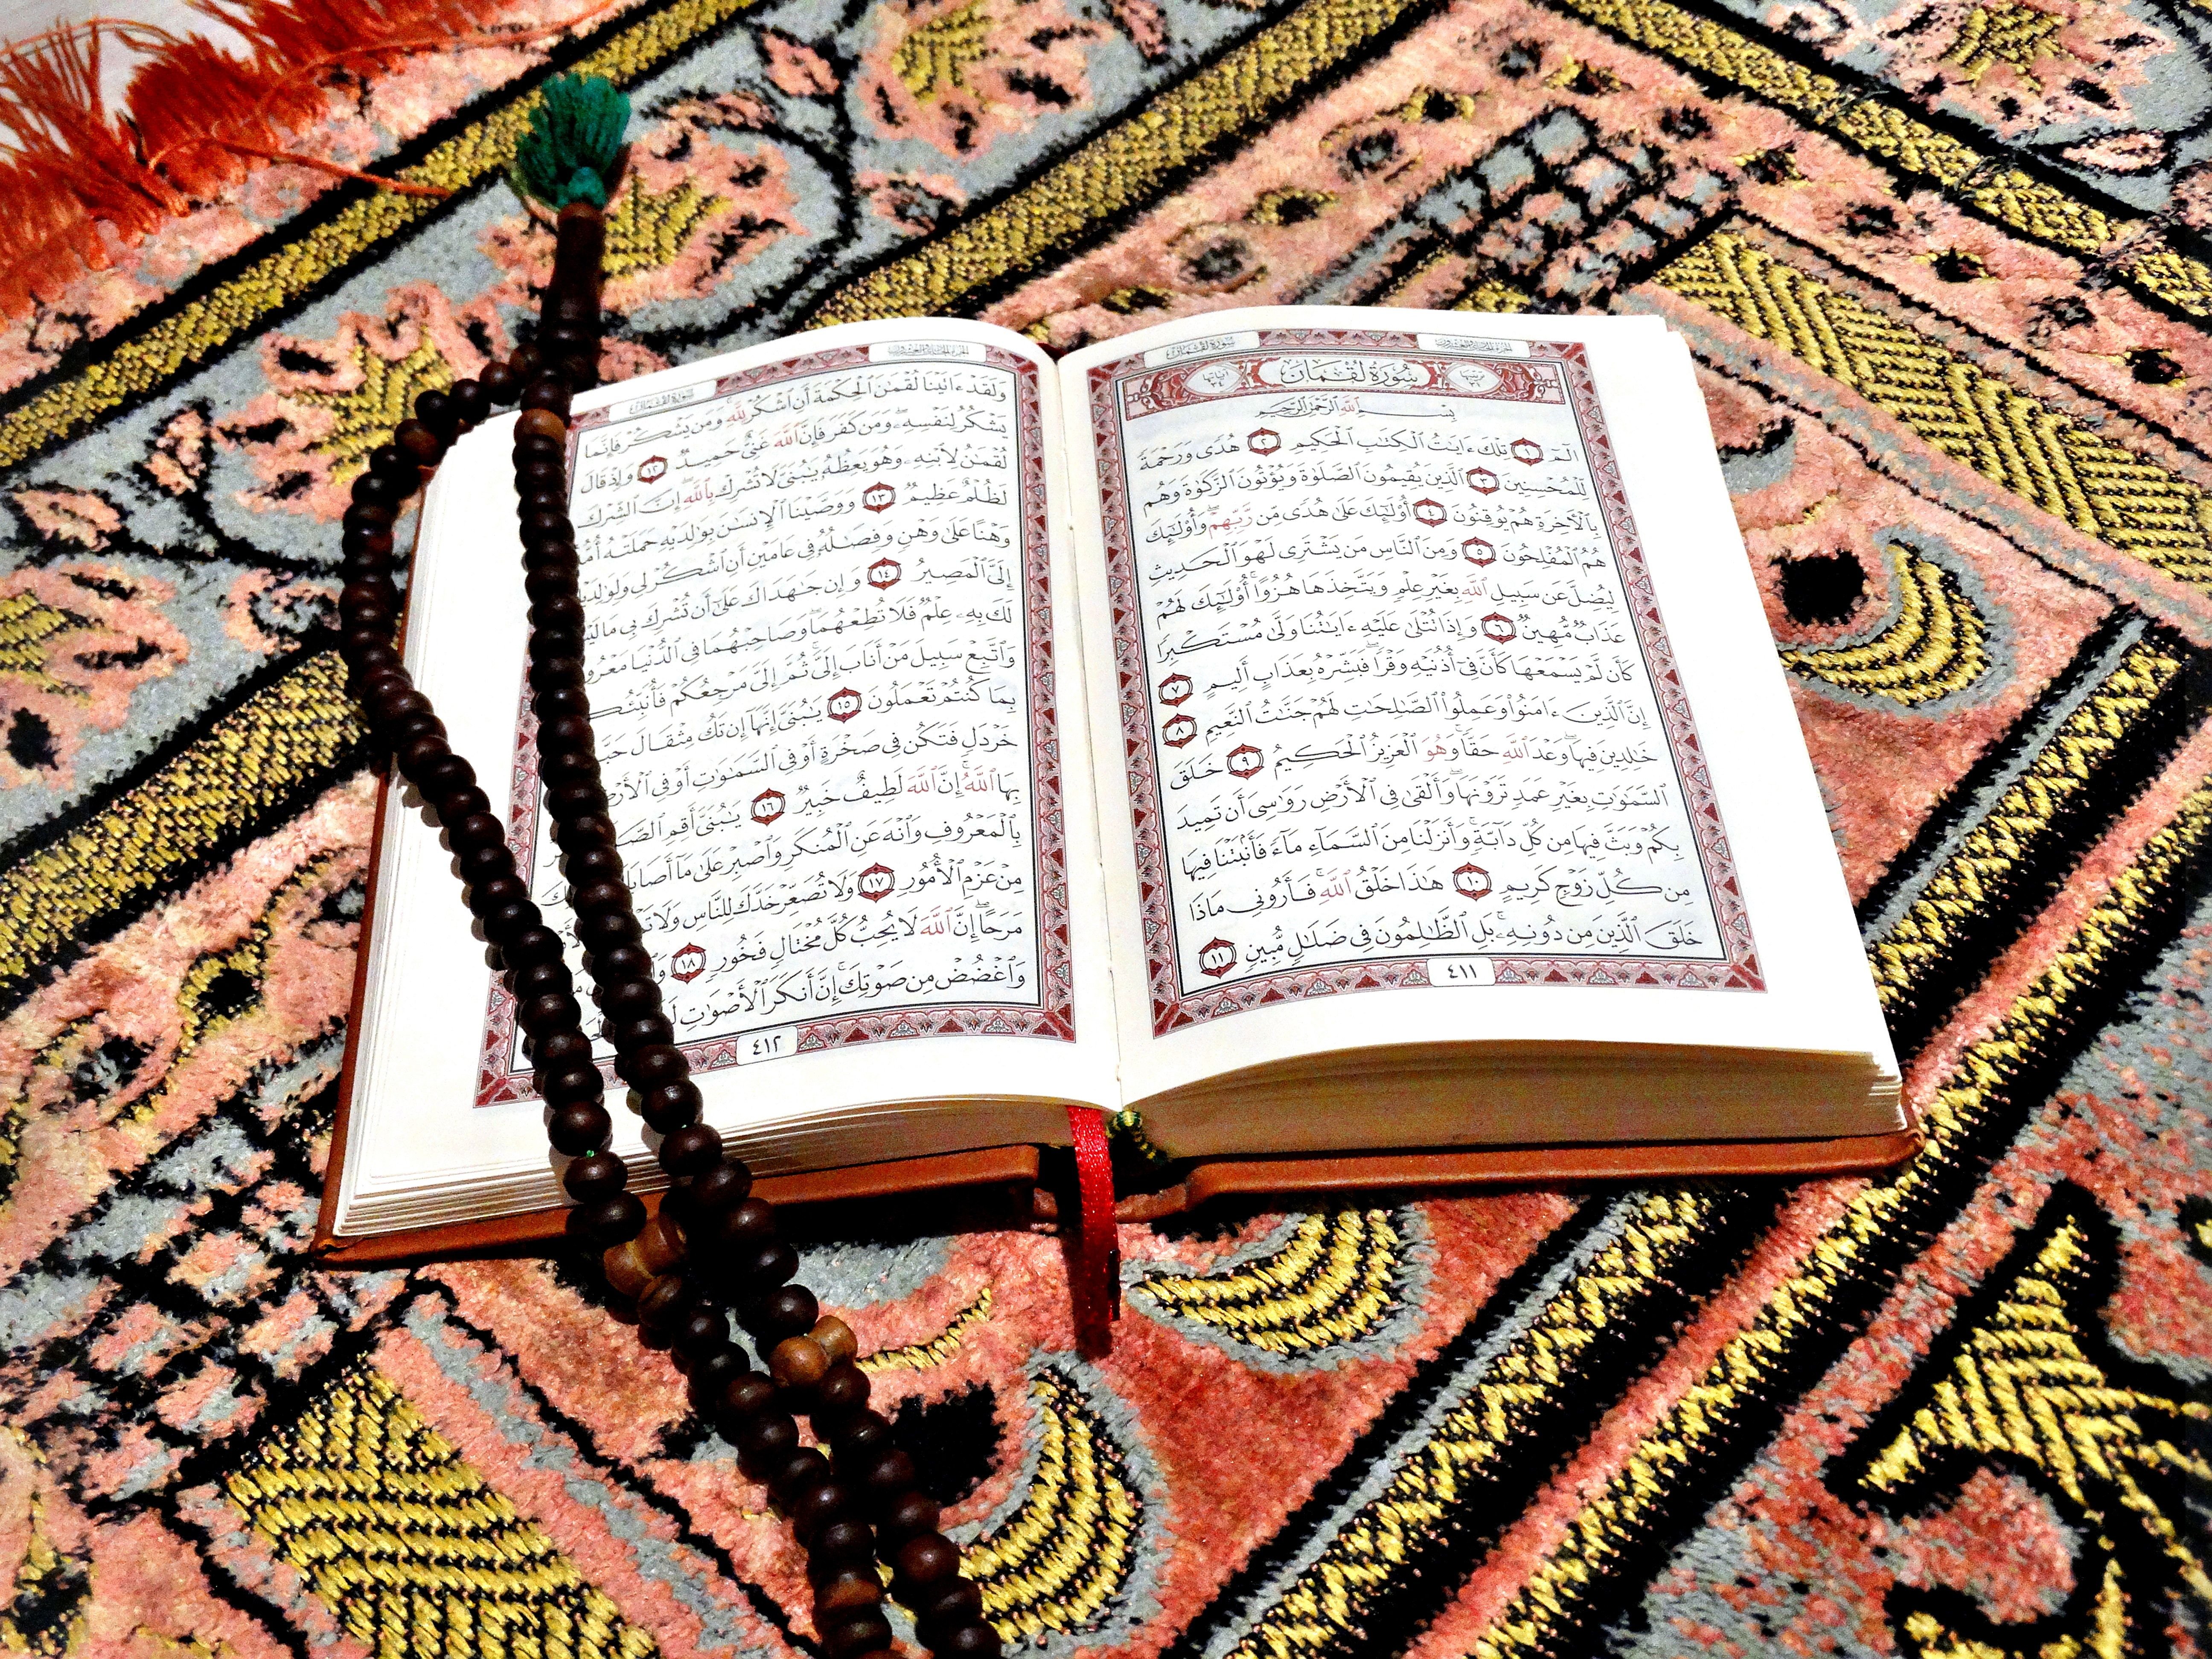 سُورَةُ لُقْمَان
الجزء الحادي والعشرون
ترتيبها ٣١
سُورَةُ لُقْمَانَ
آياتها ٣٤
بِسْمِ ٱللَّهِ ٱلرَّحْمَٰنِ ٱلرَّحِيمِ
الٓمٓ ١ تِلْكَ ءَايَٰتُ ٱلْكِتَٰبِ ٱلْحَكِيمِ ٢ هُدًى وَرَحْمَةً
لِّلْمُحْسِنِينَ ٣ ٱلَّذِينَ يُقِيمُونَ ٱلصَّلَوٰةَ وَيُؤْتُونَ ٱلزَّكَوٰةَ وَهُم
بِٱلْأَخِرَةِ هُمْ يُوقِنُونَ ٤ أُو۟لَٰٓئِكَ عَلَىٰ هُدًى مِّن رَّبِّهِمْۖ وَأُو۟لَٰٓئِكَ
هُمُ ٱلْمُفْلِحُونَ ٥ وَمِنَ ٱلنَّاسِ مَن يَشْتَرِى لَهْوَ ٱلْحَدِيثِ
لِيُضِلَّ عَن سَبِيلِ ٱللَّهِ بِغَيْرِ عِلْمٍ وَيَتَّخِذَهَا هُزُوًاۚ أُو۟لَٰٓئِكَ لَهُمْ
عَذَابٌ مُّهِينٌ ٦ وَإِذَا تُتْلَىٰ عَلَيْهِ ءَايَٰتُنَا وَلَّىٰ مُسْتَكْبِرًا
كَأَن لَّمْ يَسْمَعْهَا كَأَنَّ فِىٓ أُذُنَيْهِ وَقْرًاۖ فَبَشِّرْهُ بِعَذَابٍ أَلِيمٍ ٧
إِنَّ ٱلَّذِينَ ءَامَنُوا۟ وَعَمِلُوا۟ ٱلصَّٰلِحَٰتِ لَهُمْ جَنَّٰتُ ٱلنَّعِيمِ ٨
خَٰلِدِينَ فِيهَاۖ وَعْدَ ٱللَّهِ حَقًّاۚ وَهُوَ ٱلْعَزِيزُ ٱلْحَكِيمُ ٩ خَلَقَ
ٱلسَّمَٰوَٰتِ بِغَيْرِ عَمَدٍ تَرَوْنَهَاۖ وَأَلْقَىٰ فِى ٱلْأَرْضِ رَوَٰسِىَ أَن تَمِيدَ
بِكُمْ وَبَثَّ فِيهَا مِن كُلِّ دَآبَّةٍۚ وَأَنزَلْنَا مِنَ ٱلسَّمَآءِ مَآءً فَأَنۢبَتْنَا فِيهَا
مِن كُلِّ زَوْجٍ كَرِيمٍ ١٠ هَٰذَا خَلْقُ ٱللَّهِ فَأَرُونِى مَاذَا
خَلَقَ ٱلَّذِينَ مِن دُونِهِۦۚ بَلِ ٱلظَّٰلِمُونَ فِى ضَلَٰلٍ مُّبِينٍ ١١
٤١١
الجزء الحادي والعشرون
سُورَةُ لُقْمَان
وَلَقَدْ ءَاتَيْنَا لُقْمَٰنَ ٱلْحِكْمَةَ أَنِ ٱشْكُرْ لِلَّهِۚ وَمَن يَشْكُرْ فَإِنَّمَا
يَشْكُرُ لِنَفْسِهِۦۖ وَمَن كَفَرَ فَإِنَّ ٱللَّهَ غَنِىٌّ حَمِيدٌ ١٢ وَإِذْ قَالَ
لُقْمَٰنُ لِٱبْنِهِۦ وَهُوَ يَعِظُهُۥ يَٰبُنَىَّ لَا تُشْرِكْ بِٱللَّهِۖ إِنَّ ٱلشِّرْكَ
لَظُلْمٌ عَظِيمٌ ١٣ وَوَصَّيْنَا ٱلْإِنسَٰنَ بِوَٰلِدَيْهِ حَمَلَتْهُ أُمُّهُۥ
وَهْنًا عَلَىٰ وَهْنٍ وَفِصَٰلُهُۥ فِى عَامَيْنِ أَنِ ٱشْكُرْ لِى
إِلَىَّ ٱلْمَصِيرُ ١٤ وَإِن جَٰهَدَاكَ عَلَىٰٓ أَن تُشْرِكَ بِى مَا
لَكَ بِهِۦ عِلْمٌ فَلَا تُطِعْهُمَاۖ وَصَاحِبْهُمَا فِى ٱلدُّنْيَا
وَٱتَّبِعْ سَبِيلَ مَنْ أَنَابَ إِلَىَّۚ ثُمَّ إِلَىَّ مَرْجِعُكُمْ
بِمَا كُنتُمْ تَعْمَلُونَ ١٥ يَٰبُنَىَّ إِنَّهَآ إِن تَكُ مِثْقَالَ
خَرْدَلٍ فَتَكُن فِى صَخْرَةٍ أَوْ فِى ٱلسَّمَٰوَٰتِ أَوْ فِى ٱلْأَرْضِ
بِهَا ٱللَّهُۚ إِنَّ ٱللَّهَ لَطِيفٌ خَبِيرٌ ١٦ يَٰبُنَىَّ أَقِمِ
بِٱلْمَعْرُوفِ وَٱنْهَ عَنِ ٱلْمُنكَرِ وَٱصْبِرْ عَلَىٰ مَآ
مِنْ عَزْمِ ٱلْأُمُورِ ١٧ وَلَا تُصَعِّرْ خَدَّكَ لِلنَّاسِ وَلَا
مَرَحًاۖ إِنَّ ٱللَّهَ لَا يُحِبُّ كُلَّ مُخْتَالٍ فَخُورٍ ١٨
وَٱغْضُضْ مِن صَوْتِكَۚ إِنَّ أَنكَرَ ٱلْأَصْوَٰتِ
٤١٢